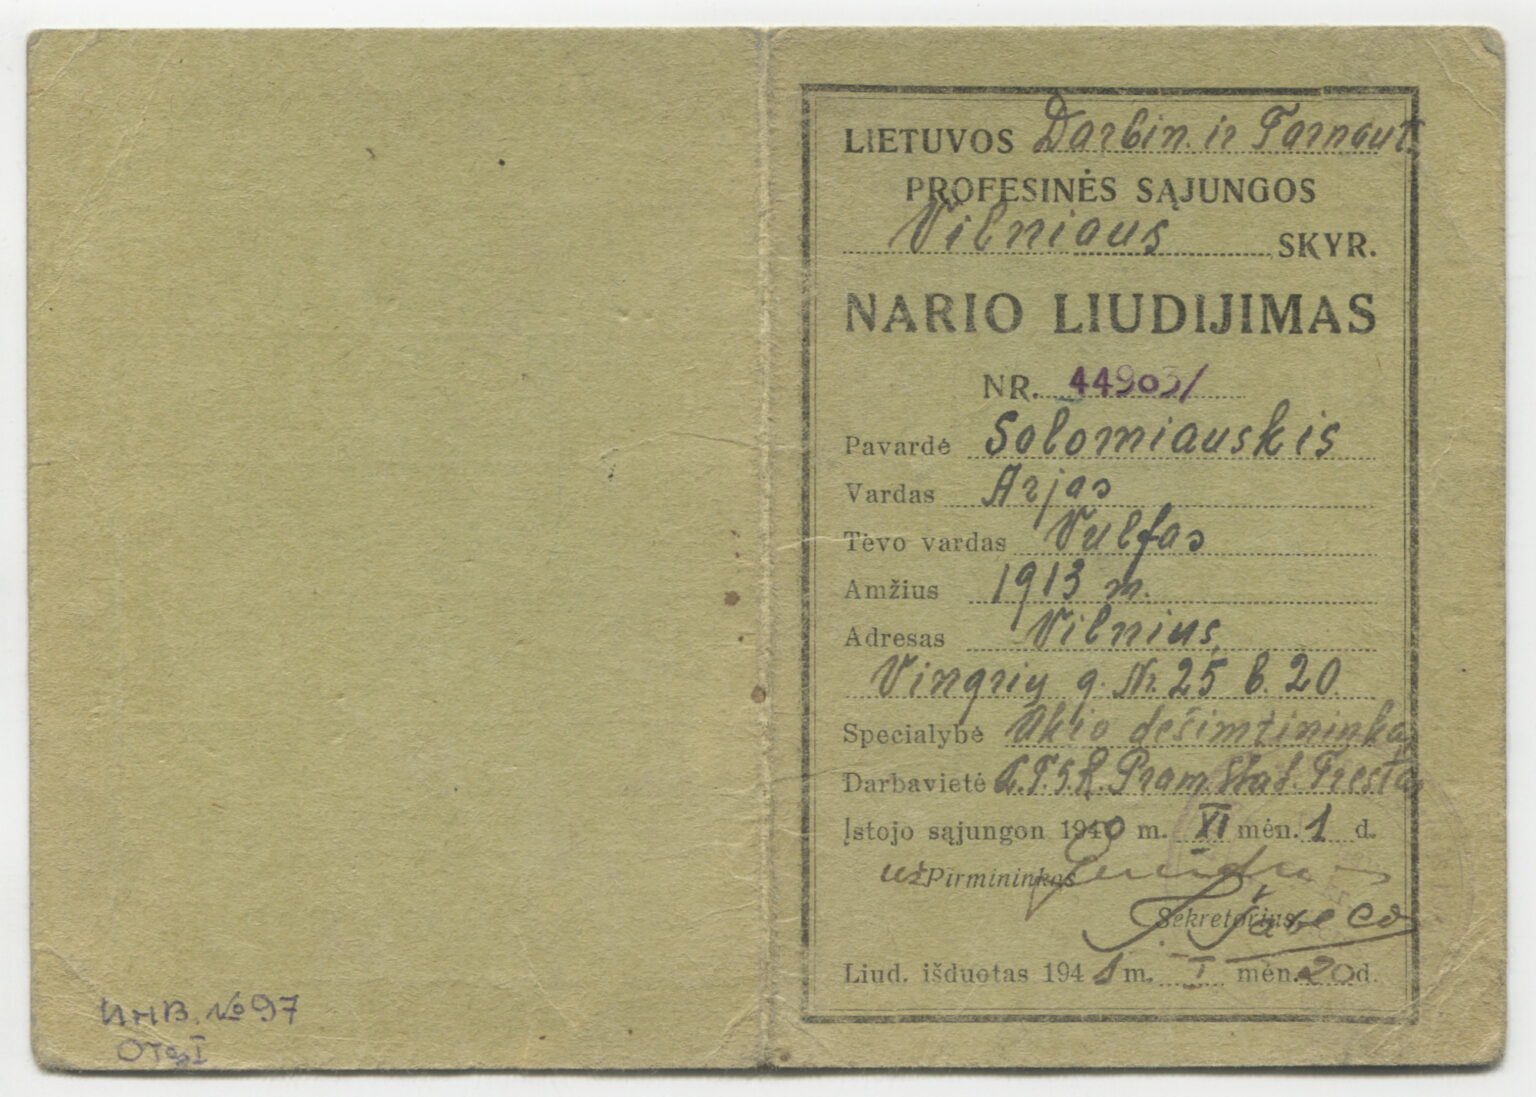 LIETUVOS Darbin. ir Tarnaut.
PROFESINĖS SĄJUNGOS
Vilniaus SKYR.
NARIO LIUDIJIMAS
NR. 44903/
Pavardė Solomiauskis
Vardas Arjas
Tėvo vardas Vulfas
Amžius 1913 m.
Adresas Vilnius,
Vingrių g. Nr. 25 b. 20.
Specialybė Ūkio dešimtininkas
Darbavietė L.T.S.R. Pram. Stat. Trestas
Įstojo sąjungon 1940 m. XI mėn. 1 d.
už Pirmininkas
Sekretorius
Liud. išduotas 1941 m. I mėn. 20 d.
ИНВ. № 97